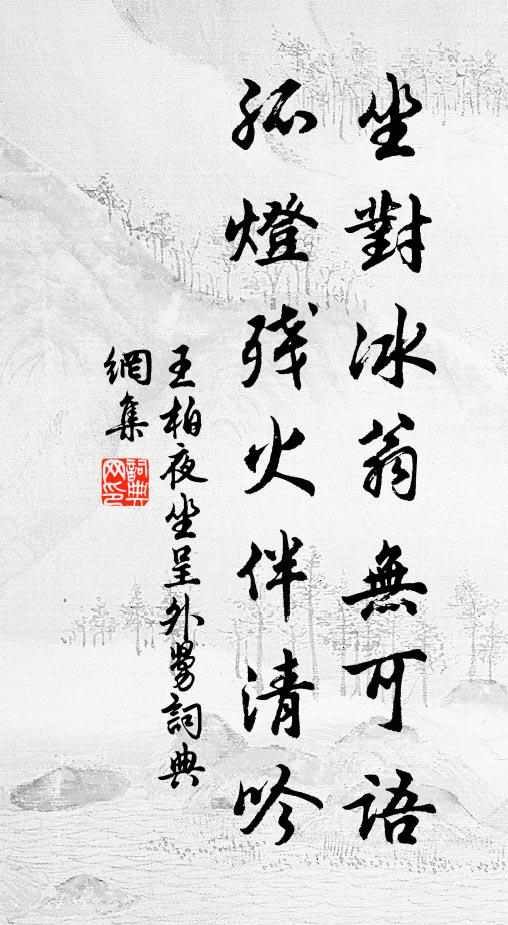 坐對冰翁無可語
孤燈残火伴清吟
王柏夜坐呈外舅詞典
網集
詞典網印